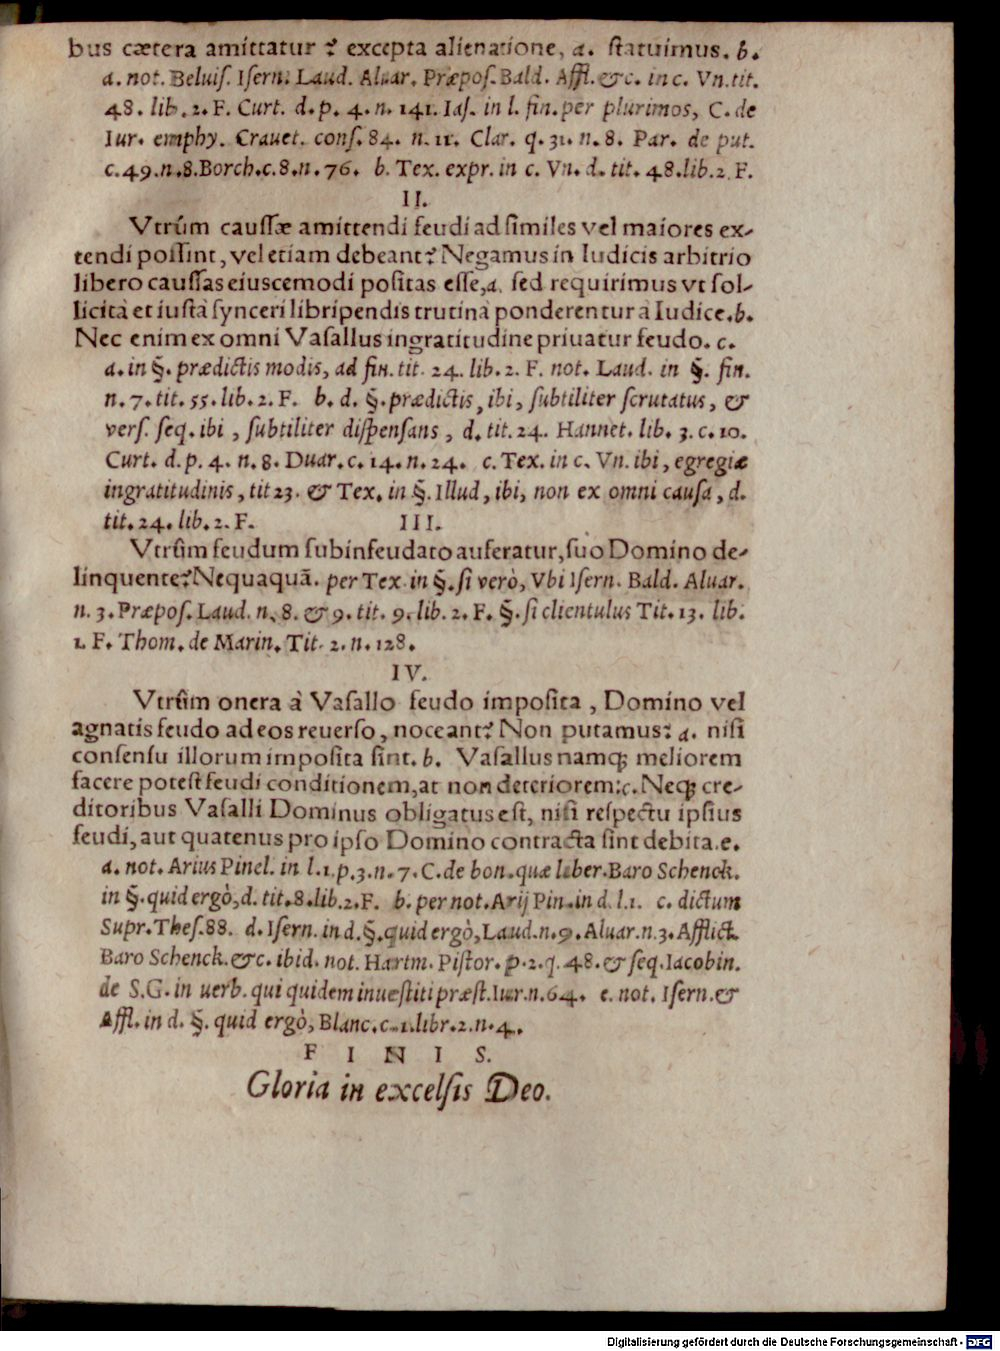 bus cætera amittatur? excepta alienatione, a. statuimus. b.
a. not. Beluiſ. Iſern. Laud. Aluar. Præpoſ. Bald. Affl. &c. in c. Vn. tit.
48. lib. 2. F. Curt. d. p. 4. n. 141. Iaſ. in l. fin. per plurimos, C. de
Iur. emphy. Crauet. conſ. 84. n. 11. Clar. q. 31. n. 8. Par. de put.
c. 49. n. 8. Borch. c. 8. n. 76. b. Tex. expr. in c. Vn. d. tit. 48. lib. 2. F.
II.
Vtrúm cauſſæ amittendi feudi ad ſimiles vel maiores ex-
tendi poſſint, vel etiam debeant? Negamus in Iudicis arbitrio
libero cauſſas eiuscemodi poſitas eſſe, a. ſed requirimus vt ſol-
licità et iuſtà ſynceri libripendis trutinà ponderentur à Iudice. b.
Nec enim ex omni Vaſallus ingratitudine priuatur feudo. c.
a. in §. prædictis modis, ad fin. tit. 24. lib. 2. F. not. Laud. in §. fin.
n. 7. tit. 55. lib. 2. F. b. d. §. prædictis, ibi, ſubtiliter ſcrutatus, &
verſ. ſeq. ibi, ſubtiliter diſpenſans, d. tit. 24. Hannet. lib. 3. c. 10.
Curt. d. p. 4. n. 8. Duar. c. 14. n. 24. c. Tex. in c. Vn. ibi, egregiæ
ingratitudinis, tit 23. & Tex. in §. Illud, ibi, non ex omni cauſa, d.
tit. 24. lib. 2. F.
III.
Vtrûm feudum ſubinfeudato auferatur, ſuo Domino de-
linquente? Nequaquã. per Tex. in §. ſi verò, Vbi Iſern. Bald. Aluar.
n. 3. Præpoſ. Laud. n. 8. & 9. tit. 9. lib. 2. F. §. ſi clientulus Tit. 13. lib.
1. F. Thom. de Marin. Tit. 2. n. 128.
IV.
Vtrûm onera à Vaſallo feudo impoſita, Domino vel
agnatis feudo ad eos reuerſo, noceant? Non putamus: a. niſi
conſenſu illorum impoſita ſint. b. Vaſallus namq; meliorem
facere poteſt feudi conditionem, at non deteriorem: c. Neq; cre-
ditoribus Vaſalli Dominus obligatus eſt, niſi reſpectu ipſius
feudi, aut quatenus pro ipſo Domino contracta ſint debita. e.
a. not. Arius Pinel. in l. 1. p. 3. n. 7. C. de bon. quæ liber. Baro Schenck.
in §. quid ergò, d. tit. 8. lib. 2. F. b. per not. Arij Pin. in d. l. 1. c. dictum
Supr. Theſ. 88. d. Iſern. in d. §. quid ergò, Laud. n. 9. Aluar. n. 3. Afflict.
Baro Schenck. &c. ibid. not. Hartm. Piſtor. p. 2. q. 48. & ſeq. Iacobin.
de S. G. in uerb. qui quidem inueſtiti præſt. Iur. n. 64. e. not. Iſern. &
Affl. in d. §. quid ergò, Blanc. c. 1. libr. 2. n. 4.
F I N I S.
Gloria in excelſis Deo.
Digitalisierung gefördert durch die Deutsche Forschungsgemeinschaft - DFG